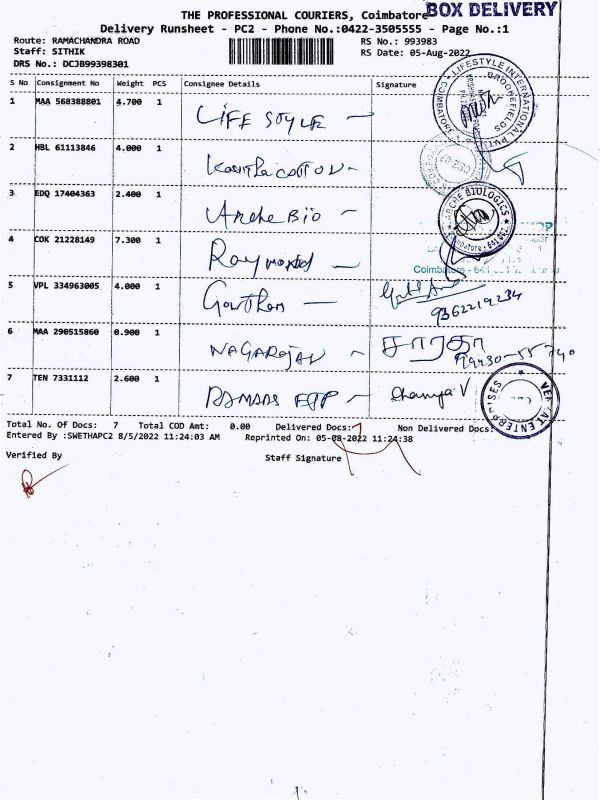 THE PROFESSIONAL COURIERS, Coimbatore
BOX DELIVERY
Delivery Runsheet - PC2 - Phone No.:0422-3505555 - Page No.:1
Route: RAMACHANDRA ROAD
RS No.: 993983
Staff: SITHIK
RS Date: 05-Aug-2022
DRS No.: DCJB99398301
S No Consignment No Weight PCS Consignee Details Signature
1 MAA 568388801 4.700 1 LIFE STYLE
LIFESTYLE INTERNATIONAL BROOKEFIELDS COIMBATORE
2 HBL 61113846 4.000 1
3 EDQ 17404363 2.400 1 Arche Bio
ARCHE BIOLOGICS Coimbatore - 641
4 COK 21228149 7.300 1 Raymond
Coimbatore - 641
5 VPL 334963005 4.000 1 Gowtham
9362219234
6 MAA 290515860 0.900 1 NAGARAJAN சாரதா
7 TEN 7331112 2.600 1 Dhanya V
ENTERPRISES
Total No. Of Docs: 7 Total COD Amt: 0.00 Delivered Docs: 7 Non Delivered Docs:
Entered By :SWETHAPC2 8/5/2022 11:24:03 AM Reprinted On: 05-08-2022 11:24:38
Verified By
Staff Signature